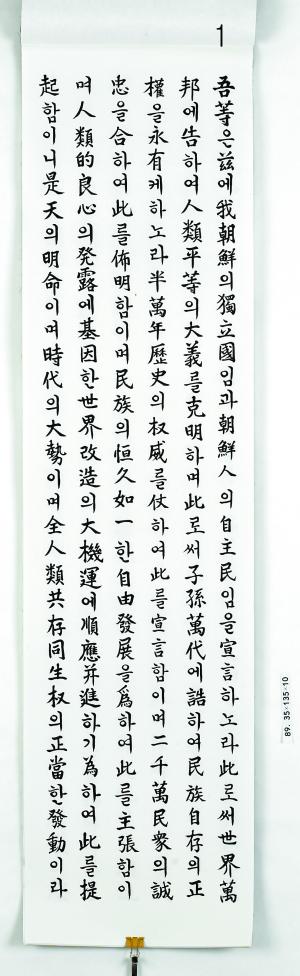 1
吾等은玆에我朝鮮의獨立國임과朝鮮人의自主民임을宣言하노라此로써世界萬
邦에告하여人類平等의大義를克明하며此로써子孫萬代에誥하여民族自存의正
權을永有케하노라半萬年歷史의权威를仗하여此를宣言함이며二千萬民衆의誠
忠을合하여此를佈明함이며民族의恒久如一한自由發展을爲하여此를主張함이
며人類的良心의発露에基因한世界改造의大機運에順應并進하기為하여此를提
起함이니是天의明命이며時代의大勢이며全人類共存同生权의正當한發動이라
89. 35×135×10